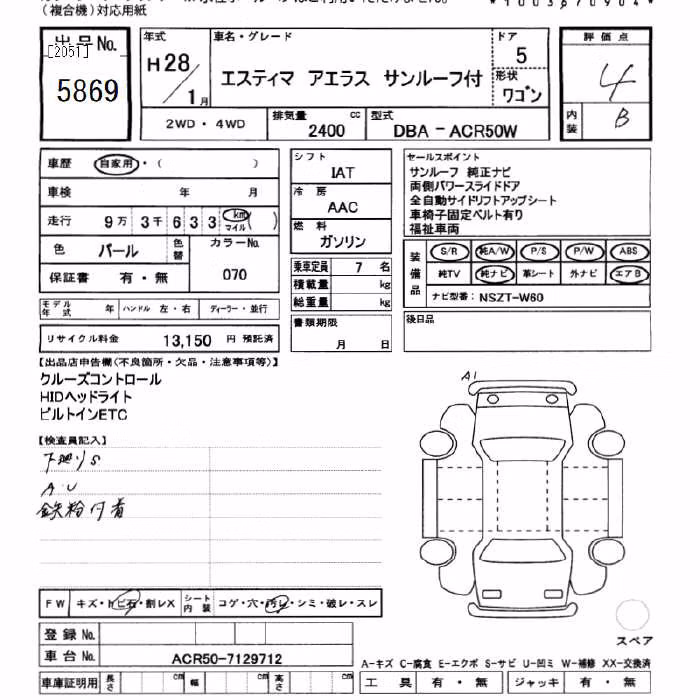 （複合機）対応用紙
*1003670904*
出品No.
[2051]
5869
年式
H28/1月
車名・グレード
エスティマ アエラス サンルーフ付
ドア
5
形状
ワゴン
評価点
4
内装
B
2WD・4WD
排気量 cc
2400
型式
DBA－ACR50W
車歴 自家用・（ ）
車検 年 月
走行 9万3千633 km マイル（ ）
色 パール 色替 カラーNo.
070
保証書 有・無
モデル年式 年 ハンドル 左・右 ディーラー・並行
リサイクル料金 13,150 円 預託済
シフト
IAT
冷房
AAC
燃料
ガソリン
乗車定員 7 名
積載量 kg
総重量 kg
書類期限
月 日
セールスポイント
サンルーフ 純正ナビ
両側パワースライドドア
全自動サイドリフトアップシート
車椅子固定ベルト有り
福祉車両
装備品
S/R 純A/W P/S P/W ABS
純TV 純ナビ 革シート 外ナビ エアB
ナビ型番： NSZT-W60
後日品
【出品店申告欄（不良箇所・欠品・注意事項等）】
クルーズコントロール
HIDヘッドライト
ビルトインETC
【検査員記入】
下廻りS
A.U
鉄粉付着
A1
FW キズ・トビ石・割レX シート内装 コゲ・穴・汚レ・シミ・破レ・スレ
登録No.
車台No. ACR50-7129712
車庫証明用 長さ cm 幅 cm 高さ cm
スペア
A-キズ C-腐食 E-エクボ S-サビ U-凹ミ W-補修 XX-交換済
工具 有・無 ジャッキ 有・無